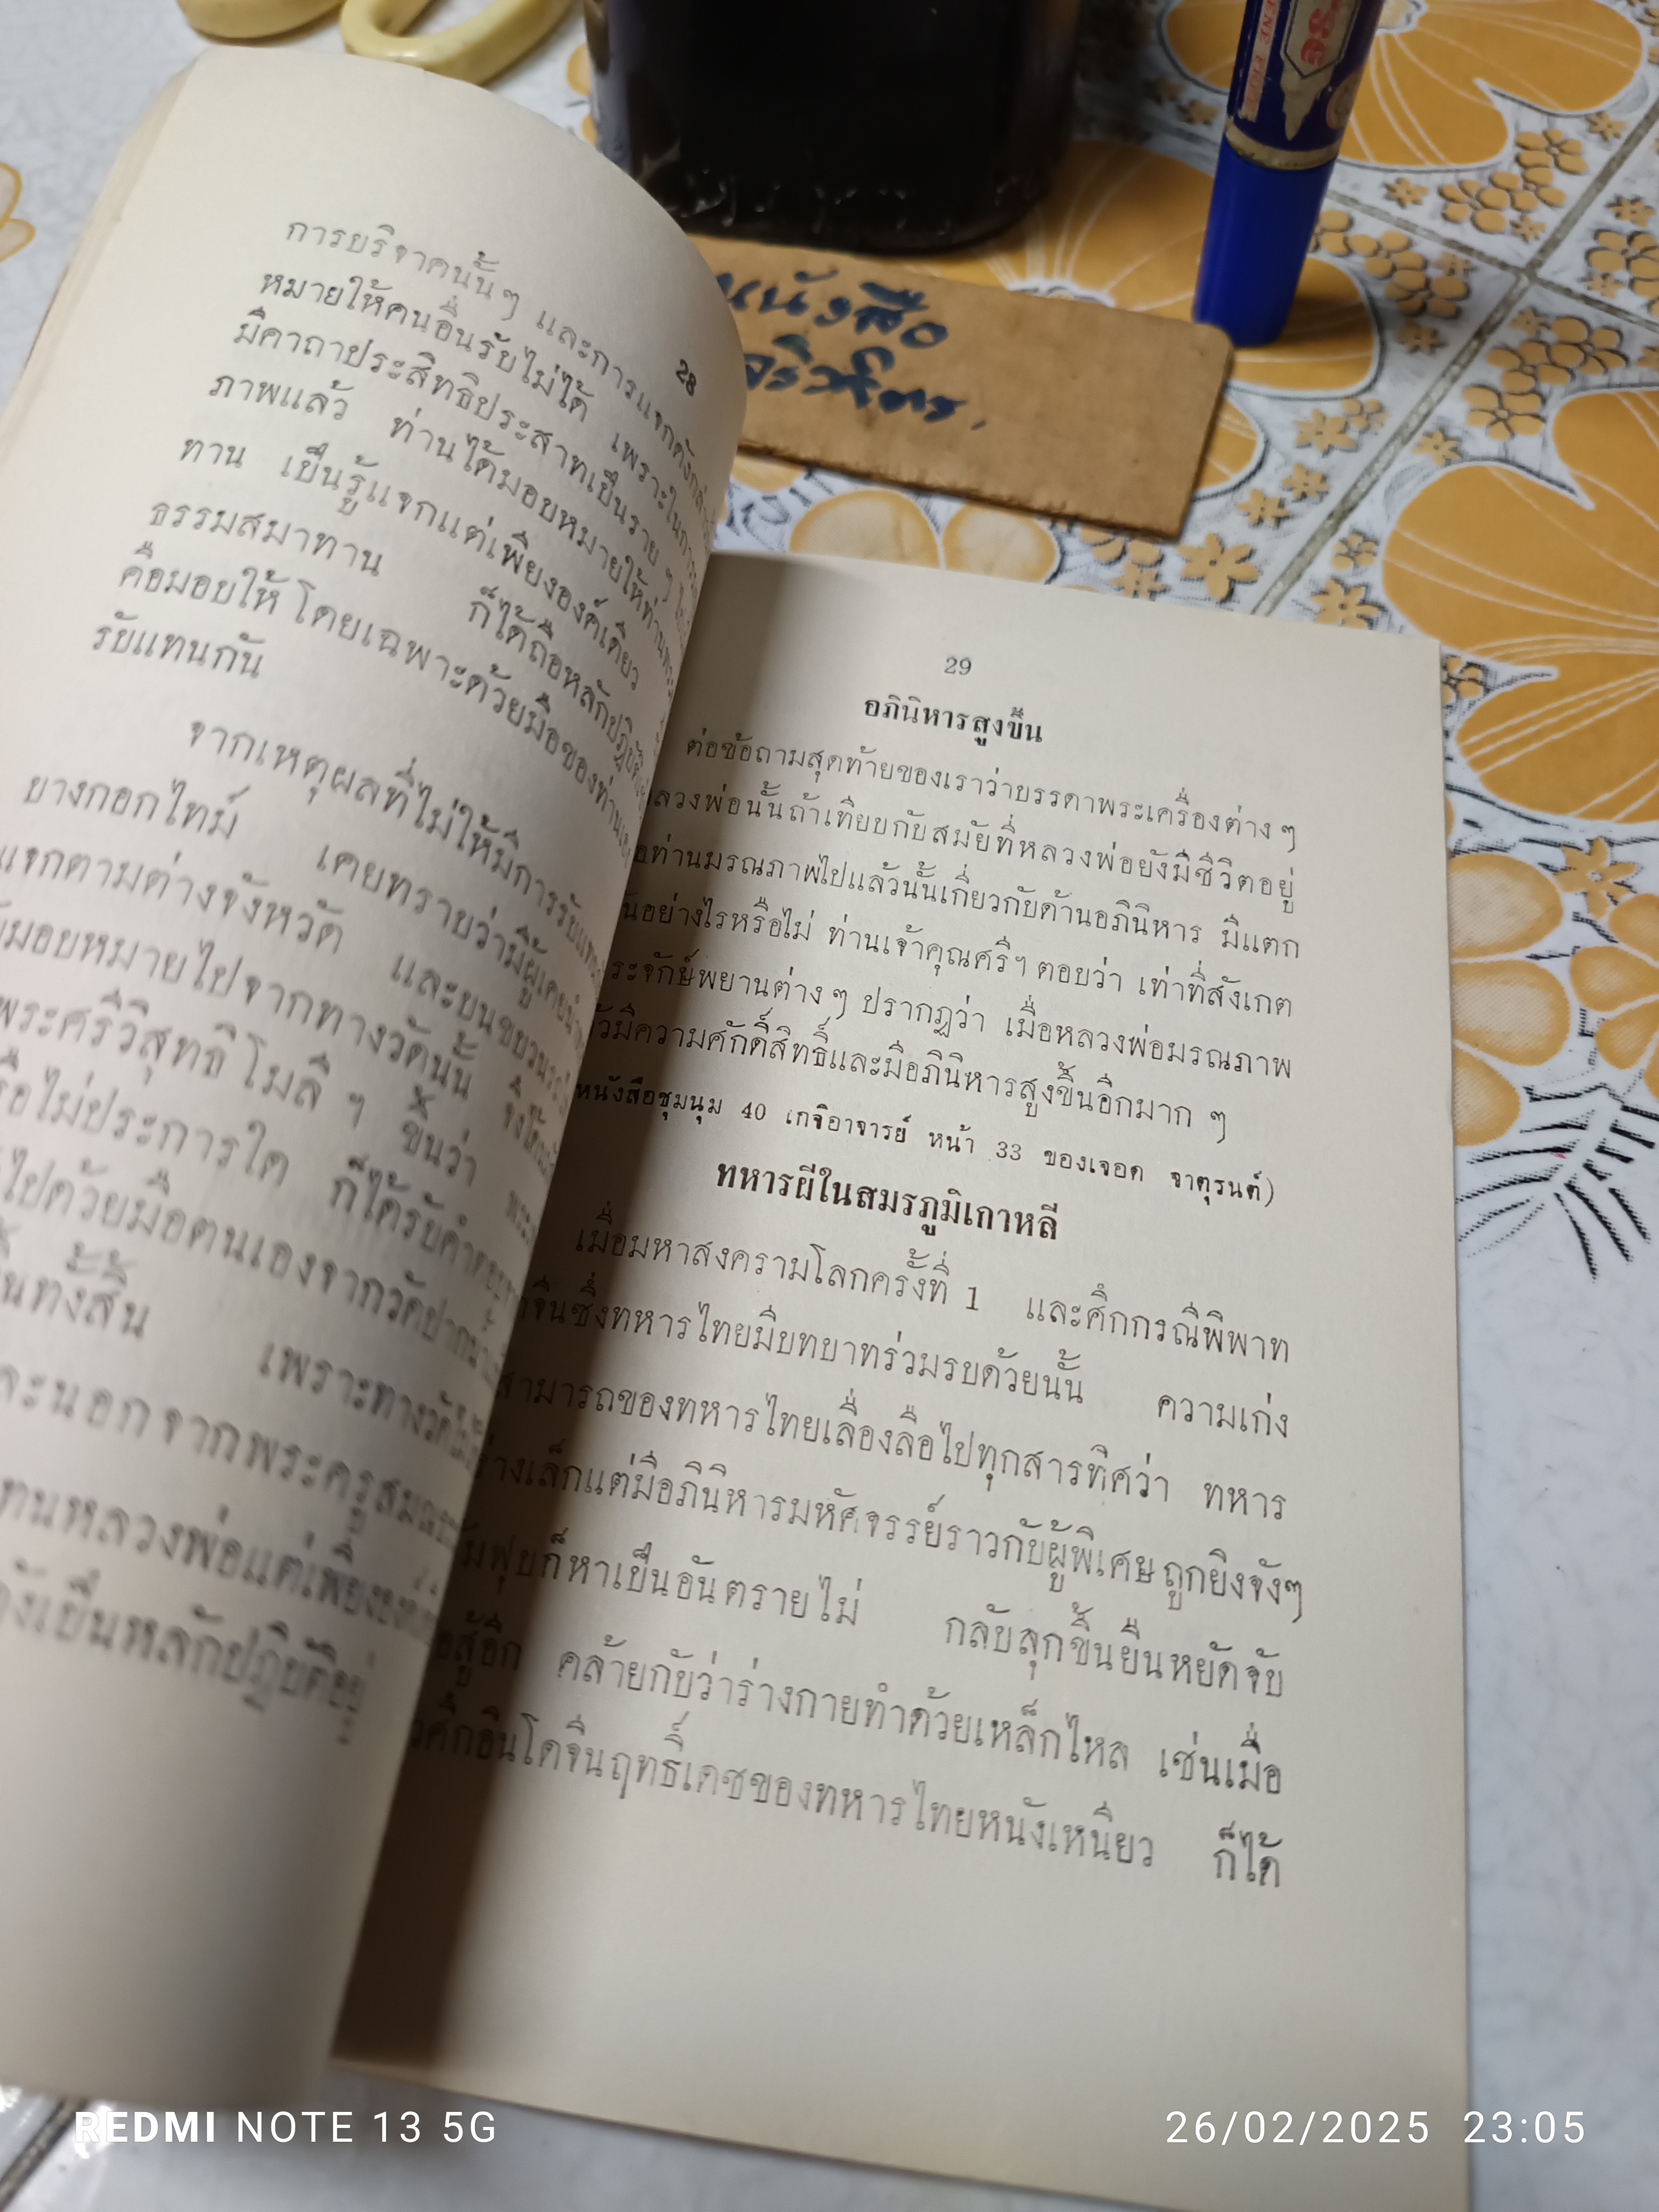 28
การบริจาคนั้น ๆ และการแจกดังกล่
หมายให้คนอื่นรับไม่ได้ เพราะในการ
มีคาถาประสิทธิประสาทเป็นราย ๆ
ภาพแล้ว ท่านได้มอบหมายให้ท่าน
ทาน เป็นรู้แจกแต่เพียงองค์เดียว
ธรรมสมาทาน ก็ได้ถือหลักปฏิบัติ
คือมอบให้โดยเฉพาะด้วยมือของท่านเอง
รับแทนกัน
จากเหตุผลที่ไม่ให้มีการรับแทน
บางกอกไทม์ เคยทราบว่ามีผู้เคยนำ
แจกตามต่างจังหวัด และบนขบวนรถ
มอบหมายไปจากทางวัดนั้น จึงได้
พระศรีวิสุทธิโมลี ๆ ขึ้นว่า
รือไม่ประการใด ก็ได้รับคำตอบ
ไปด้วยมือตนเองจากวัดปากน้ำ
นทั้งสิ้น เพราะทางวัดได้
ละนอกจากพระครูสมณ
ทนหลวงพ่อแต่เพียงองค์
ังเป็นหลักปฏิบัติอยู่
หนังสือ
29
อภินิหารสูงขึ้น
ต่อข้อถามสุดท้ายของเราว่าบรรดาพระเครื่องต่าง ๆ
ลวงพ่อนั้นถ้าเทียบกับสมัยที่หลวงพ่อยังมีชีวิตอยู่
อท่านมรณภาพไปแล้วนั้นเกี่ยวกับด้านอภินิหาร มีแตก
ันอย่างไรหรือไม่ ท่านเจ้าคุณศรีฯ ตอบว่า เท่าที่สังเกต
ระจักษ์พยานต่าง ๆ ปรากฏว่า เมื่อหลวงพ่อมรณภาพ
้วมีความศักดิ์สิทธิ์และมีอภินิหารสูงขึ้นอีกมาก ๆ
หนังสือชุมนุม 40 เกจิอาจารย์ หน้า 33 ของเจอด จาตุรนต์)
ทหารผีในสมรภูมิเกาหลี
เมื่อมหาสงครามโลกครั้งที่ 1 และศึกกรณีพิพาท
จีนซึ่งทหารไทยมีบทบาทร่วมรบด้วยนั้น ความเก่ง
สามารถของทหารไทยเลื่องลือไปทุกสารทิศว่า ทหาร
ร่างเล็กแต่มีอภินิหารมหัศจรรย์ราวกับผู้พิเศษถูกยิงจังๆ
มฟุบก็หาเป็นอันตรายไม่ กลับลุกขึ้นยืนหยัดจับ
อสู้อีก คล้ายกับว่าร่างกายทำด้วยเหล็กไหล เช่นเมื่อ
ศึกอินโดจีนฤทธิ์เดชของทหารไทยหนังเหนียว ก็ได้
REDMI NOTE 13 5G
26/02/2025 23:05